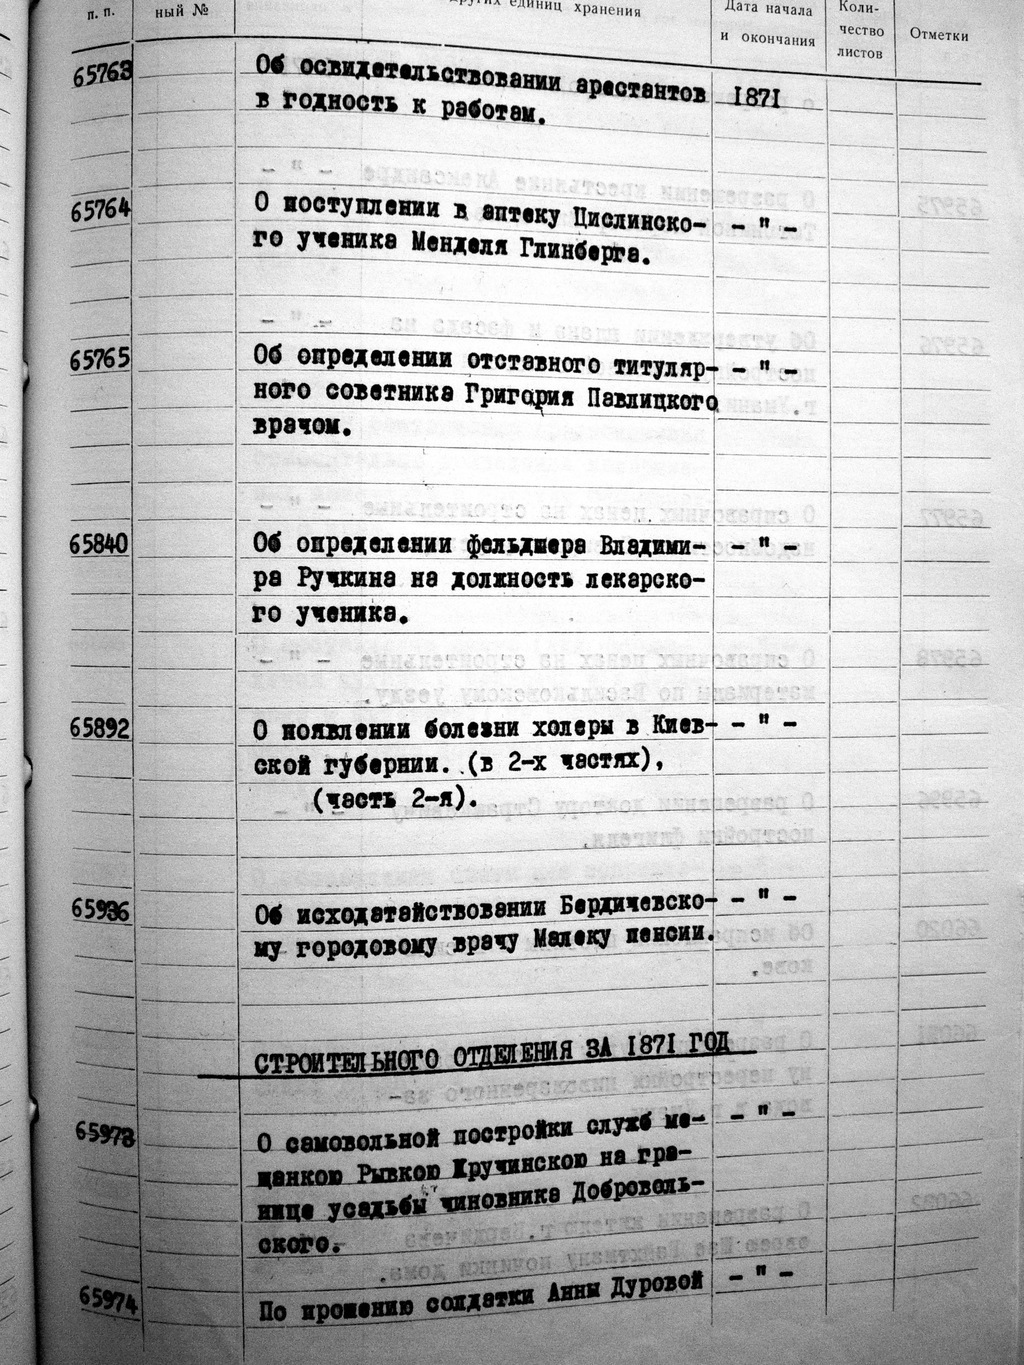 п. п.
ный №
других единиц хранения
Дата начала
и окончания
Коли-
чество
листов
Отметки
65763
Об освидетельствовании арестантов 1871
в годность к работам.
65764
О поступлении в аптеку Цислинско- - " -
го ученика Менделя Глинберга.
65765
Об определении отставного титуляр- - " -
ного советника Григория Павлицкого
врачом.
65840
Об определении фельдшера Владими- - " -
ра Ручкина на должность лекарско-
го ученика.
65892
О появлении болезни холеры в Киев- - " -
ской губернии. (в 2-х частях),
(часть 2-я).
65936
Об исходатайствовании Бердичевско- - " -
му городовому врачу Малеку пенсии.
СТРОИТЕЛЬНОГО ОТДЕЛЕНИЯ ЗА 1871 ГОД
65973
О самовольной постройки служб ме- - " -
щанкою Рывкою Кручинскою на гра-
нице усадьбы чиновника Доброволь-
ского.
65974
По прошению солдатки Анны Дуровой - " -